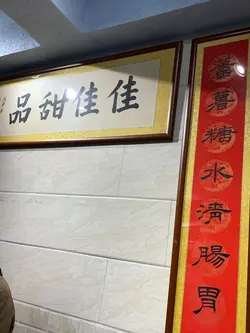 佳佳甜品
蕃薯糖水清腸胃